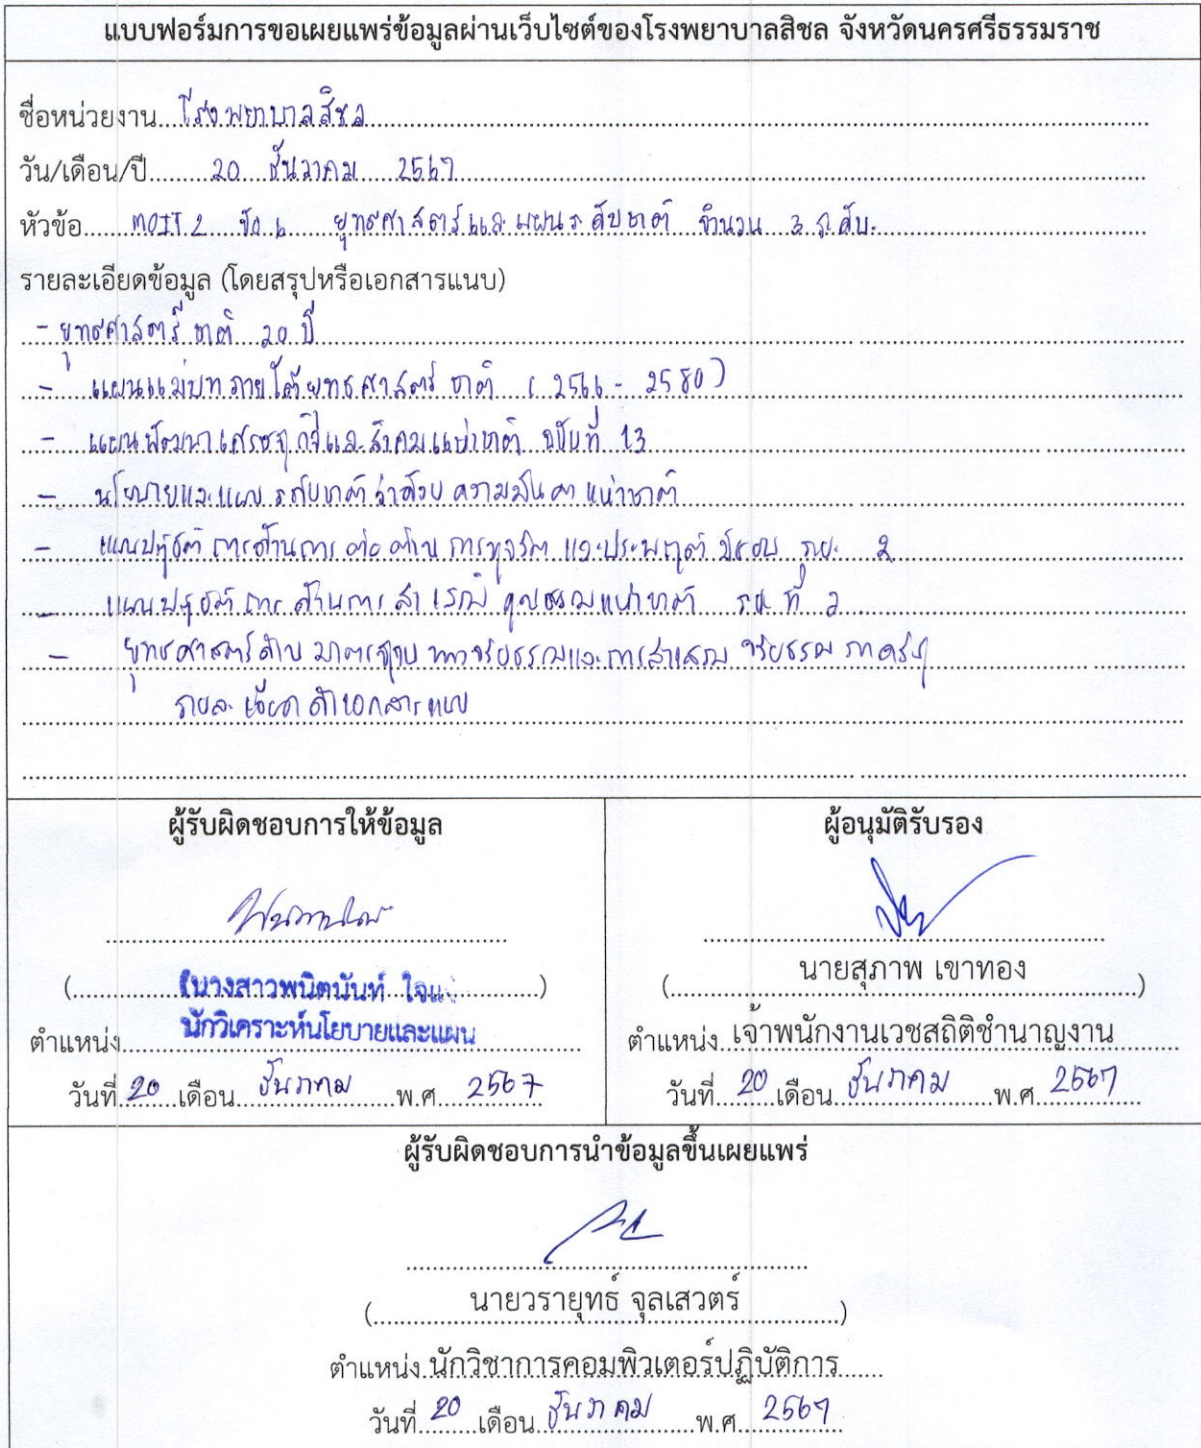 แบบฟอร์มการขอเผยแพร่ข้อมูลผ่านเว็บไซต์ของโรงพยาบาลสิชล จังหวัดนครศรีธรรมราช
ชื่อหน่วยงาน โรงพยาบาลสิชล
วัน/เดือน/ปี 20 ธันวาคม 2567
หัวข้อ MOIT 2 ข้อ 6 ยุทธศาสตร์และแผนระดับชาติ จำนวน 3 ระดับ
รายละเอียดข้อมูล (โดยสรุปหรือเอกสารแนบ)
- ยุทธศาสตร์ชาติ 20 ปี
- แผนแม่บทภายใต้ยุทธศาสตร์ชาติ (2566 - 2580)
- แผนพัฒนาเศรษฐกิจและสังคมแห่งชาติ ฉบับที่ 13
- นโยบายและแผนระดับชาติว่าด้วยความมั่นคงแห่งชาติ
- แผนปฏิบัติการด้านการต่อต้านการทุจริตและประพฤติมิชอบ ระยะ 2
- แผนปฏิบัติการด้านการส่งเสริมคุณธรรมแห่งชาติ ระยะที่ 2
- ยุทธศาสตร์ด้านมาตรฐานทางจริยธรรมและการส่งเสริมจริยธรรมภาครัฐ
รายละเอียดตามเอกสารแนบ
ผู้รับผิดชอบการให้ข้อมูล
(นางสาวพนิตนันท์ )
ตำแหน่ง นักวิเคราะห์นโยบายและแผน
วันที่ 20 เดือน ธันวาคม พ.ศ. 2567
ผู้อนุมัติรับรอง
(นายสุภาพ เขาทอง)
ตำแหน่ง เจ้าพนักงานเวชสถิติชำนาญงาน
วันที่ 20 เดือน ธันวาคม พ.ศ. 2567
ผู้รับผิดชอบการนำข้อมูลขึ้นเผยแพร่
(นายวรายุทธ์ จุลเสวตร์)
ตำแหน่ง นักวิชาการคอมพิวเตอร์ปฏิบัติการ
วันที่ 20 เดือน ธันวาคม พ.ศ. 2567